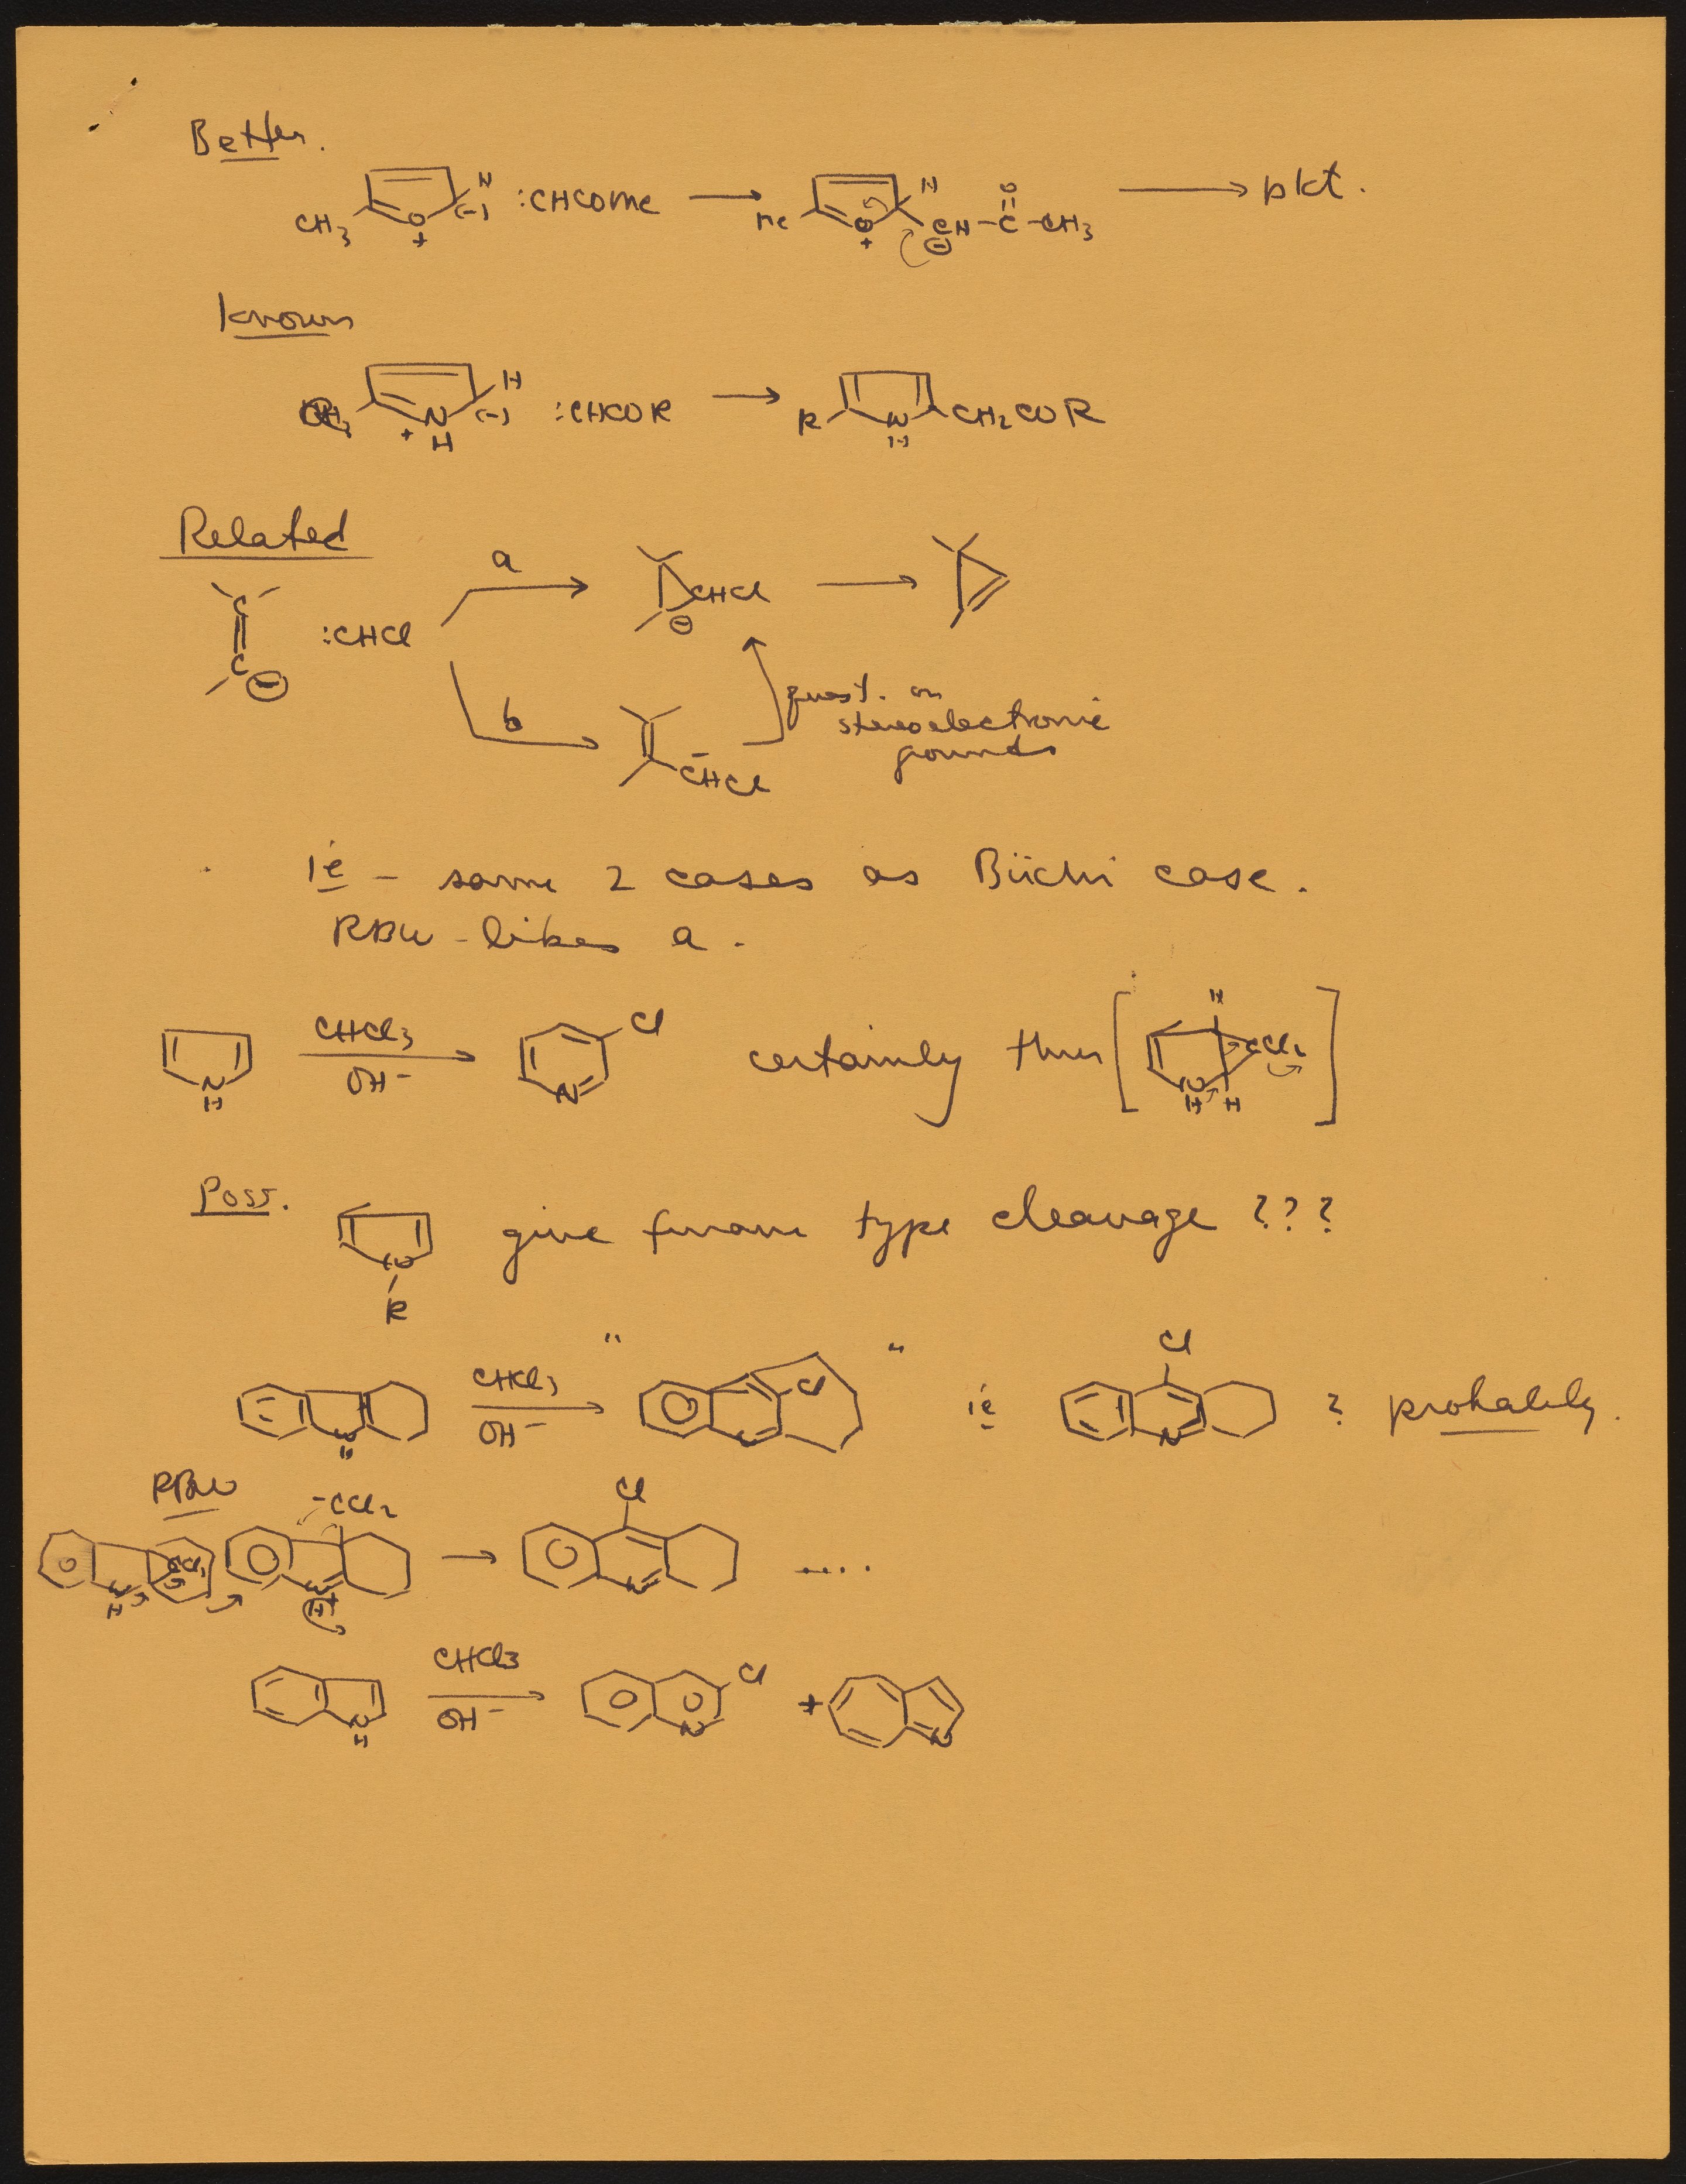 Better.
CH3 O + H (-) :CHCOMe → Me O + H CH ⊖ - C - CH3 O → pkt.
Known
N H + H (-) :CHCOR → R N H CH2COR
Related
C C ⊖ :CHCl a → CHCl ⊖ →
b → C̄HCl quest. on
stereoelectronic
grounds
ie - same 2 cases as Büchi case.
RBW - likes a.
N H CHCl3 OH- → N Cl certainly thru [ N H H H CCl2 ]
Poss. N R give furane type cleavage ???
N H CHCl3 OH- → " N Cl " ie N Cl ? probably.
RBW
N H CCl2 N H + -CCl2 → N Cl ....
N H CHCl3 OH- → N Cl + N